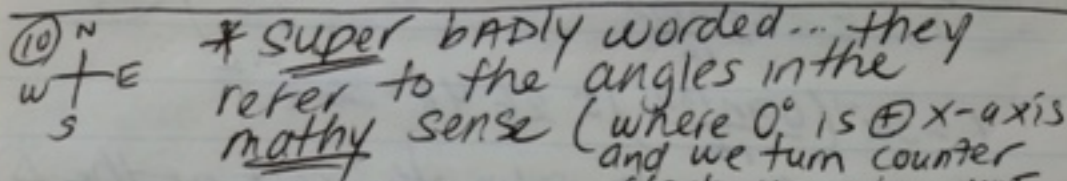 ⑩ N
W E
S
* super bADly worded... they
refer to the angles in the
mathy sense (where 0° is ⊕ x-axis
and we turn counter